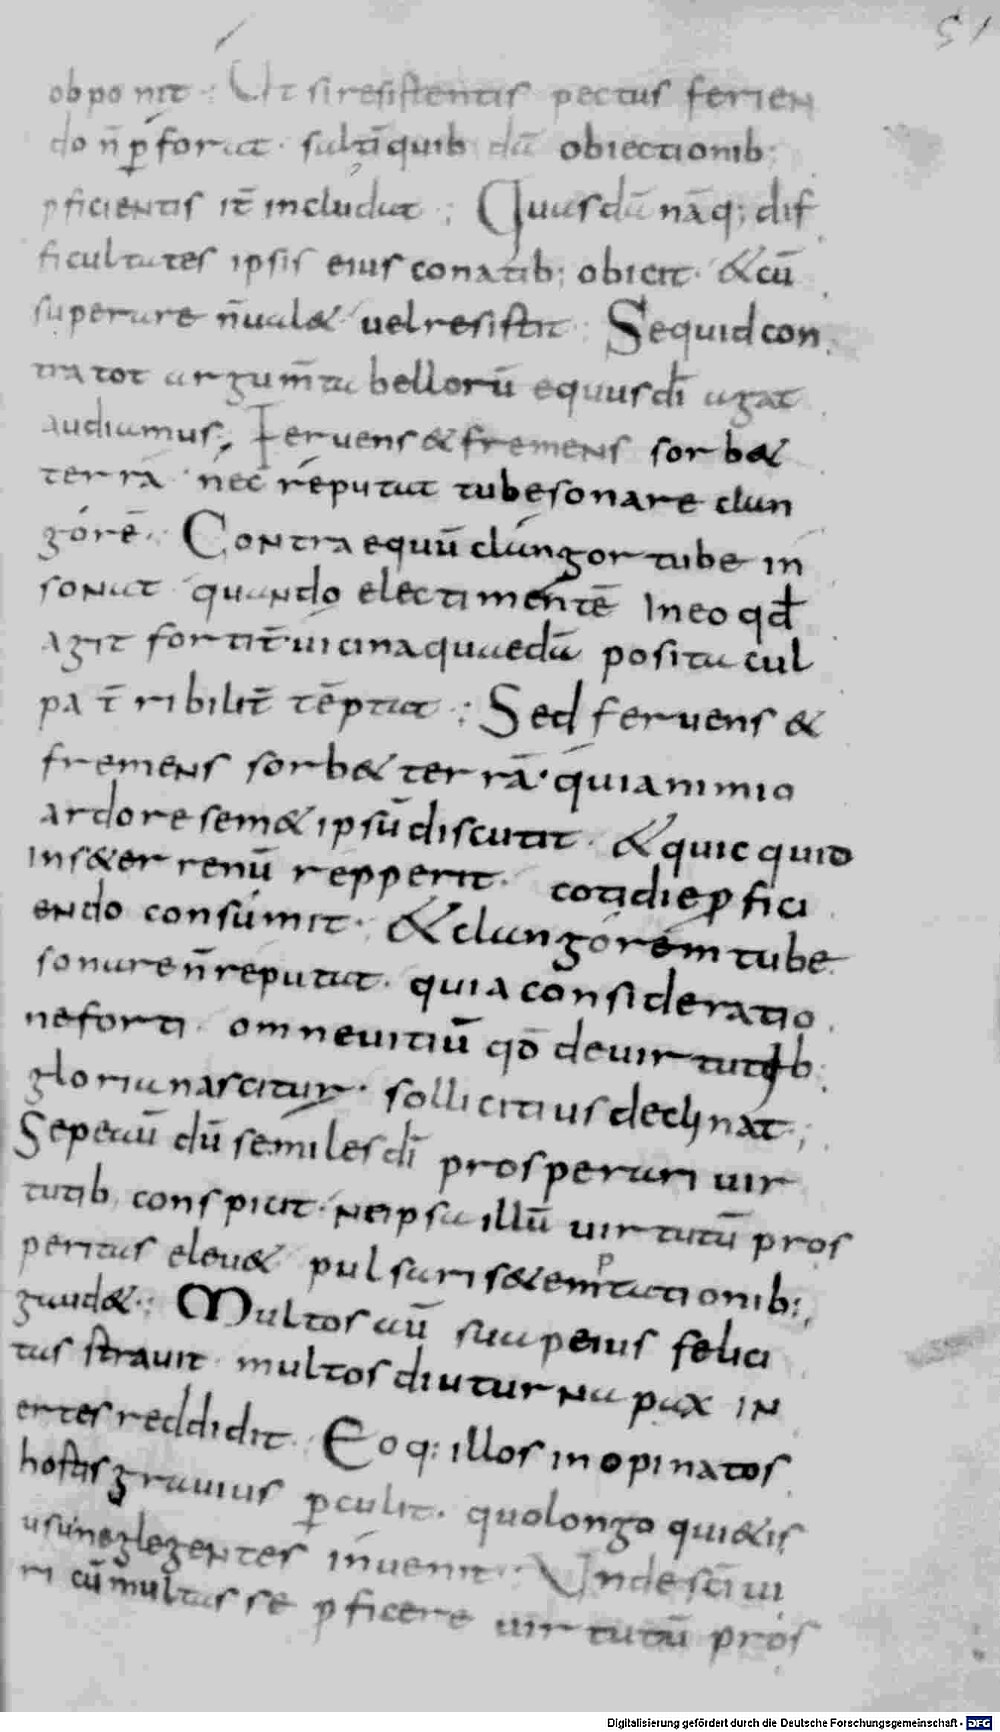 51
obponit·: Ut siresistentis pectus ferien
do n̄ p̱forat· saltī quib; dā obiectionib;
p̱ficientis it̄ includat·; Quasdā nāq; dif
ficultates ipsis eius conatib; obicit· &cū
superare n̄ual& uelresistit·: Sequid con
tra tot argum̄ta bellorū equus dī agat
audiamus; Feruens & fremens sorb&
terrā· nec reputat tube sonare clan
gorē·. Contra equū clangor tube in
sonat quando electi mentē In eo qđ
agit fortit̄ uicina quaedā posita cul
pa t̄ribilit̄ tēptat·: Sed feruens &
fremens sorb& terrā· quia nimio
ardore sem& ipsū discutit· & quicquid
ins& errenū repperit· cotidie p̱fici
endo consumit· & clangorem tube
sonare n̄ reputat· quia consideratio
ne forti· omne uitiū qd̄ de uirtutib;
gloria nascitur· sollicitius declinat·;
Sepe aū dū semiles dī prosperari uir
tutib; conspicit· ne ipsa illū uirtutū pros
peritas eleu& pulsari s& emptationib;
gaud&·; Multos aū sua peius felici
tas strauit· multos diuturna pax in
ertes reddidit· Eoq; illos inopinatos
hostis grauius p̱culit· quo longo qui&is
usu neglegentes inuenit·. Unde scī ui
ri cū multas se p̱ficere uirtutū pros
Digitalisierung gefördert durch die Deutsche Forschungsgemeinschaft - DFG